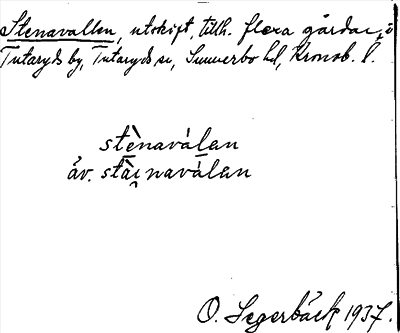 Stenavallen, utskift, tillh. flera gårdar, i
Tutaryds by, Tutaryds sn, Sunnerbo hd, Kronob. l.
stènaválan
äv. stài̯naválan
O. Segerbäck 1937.